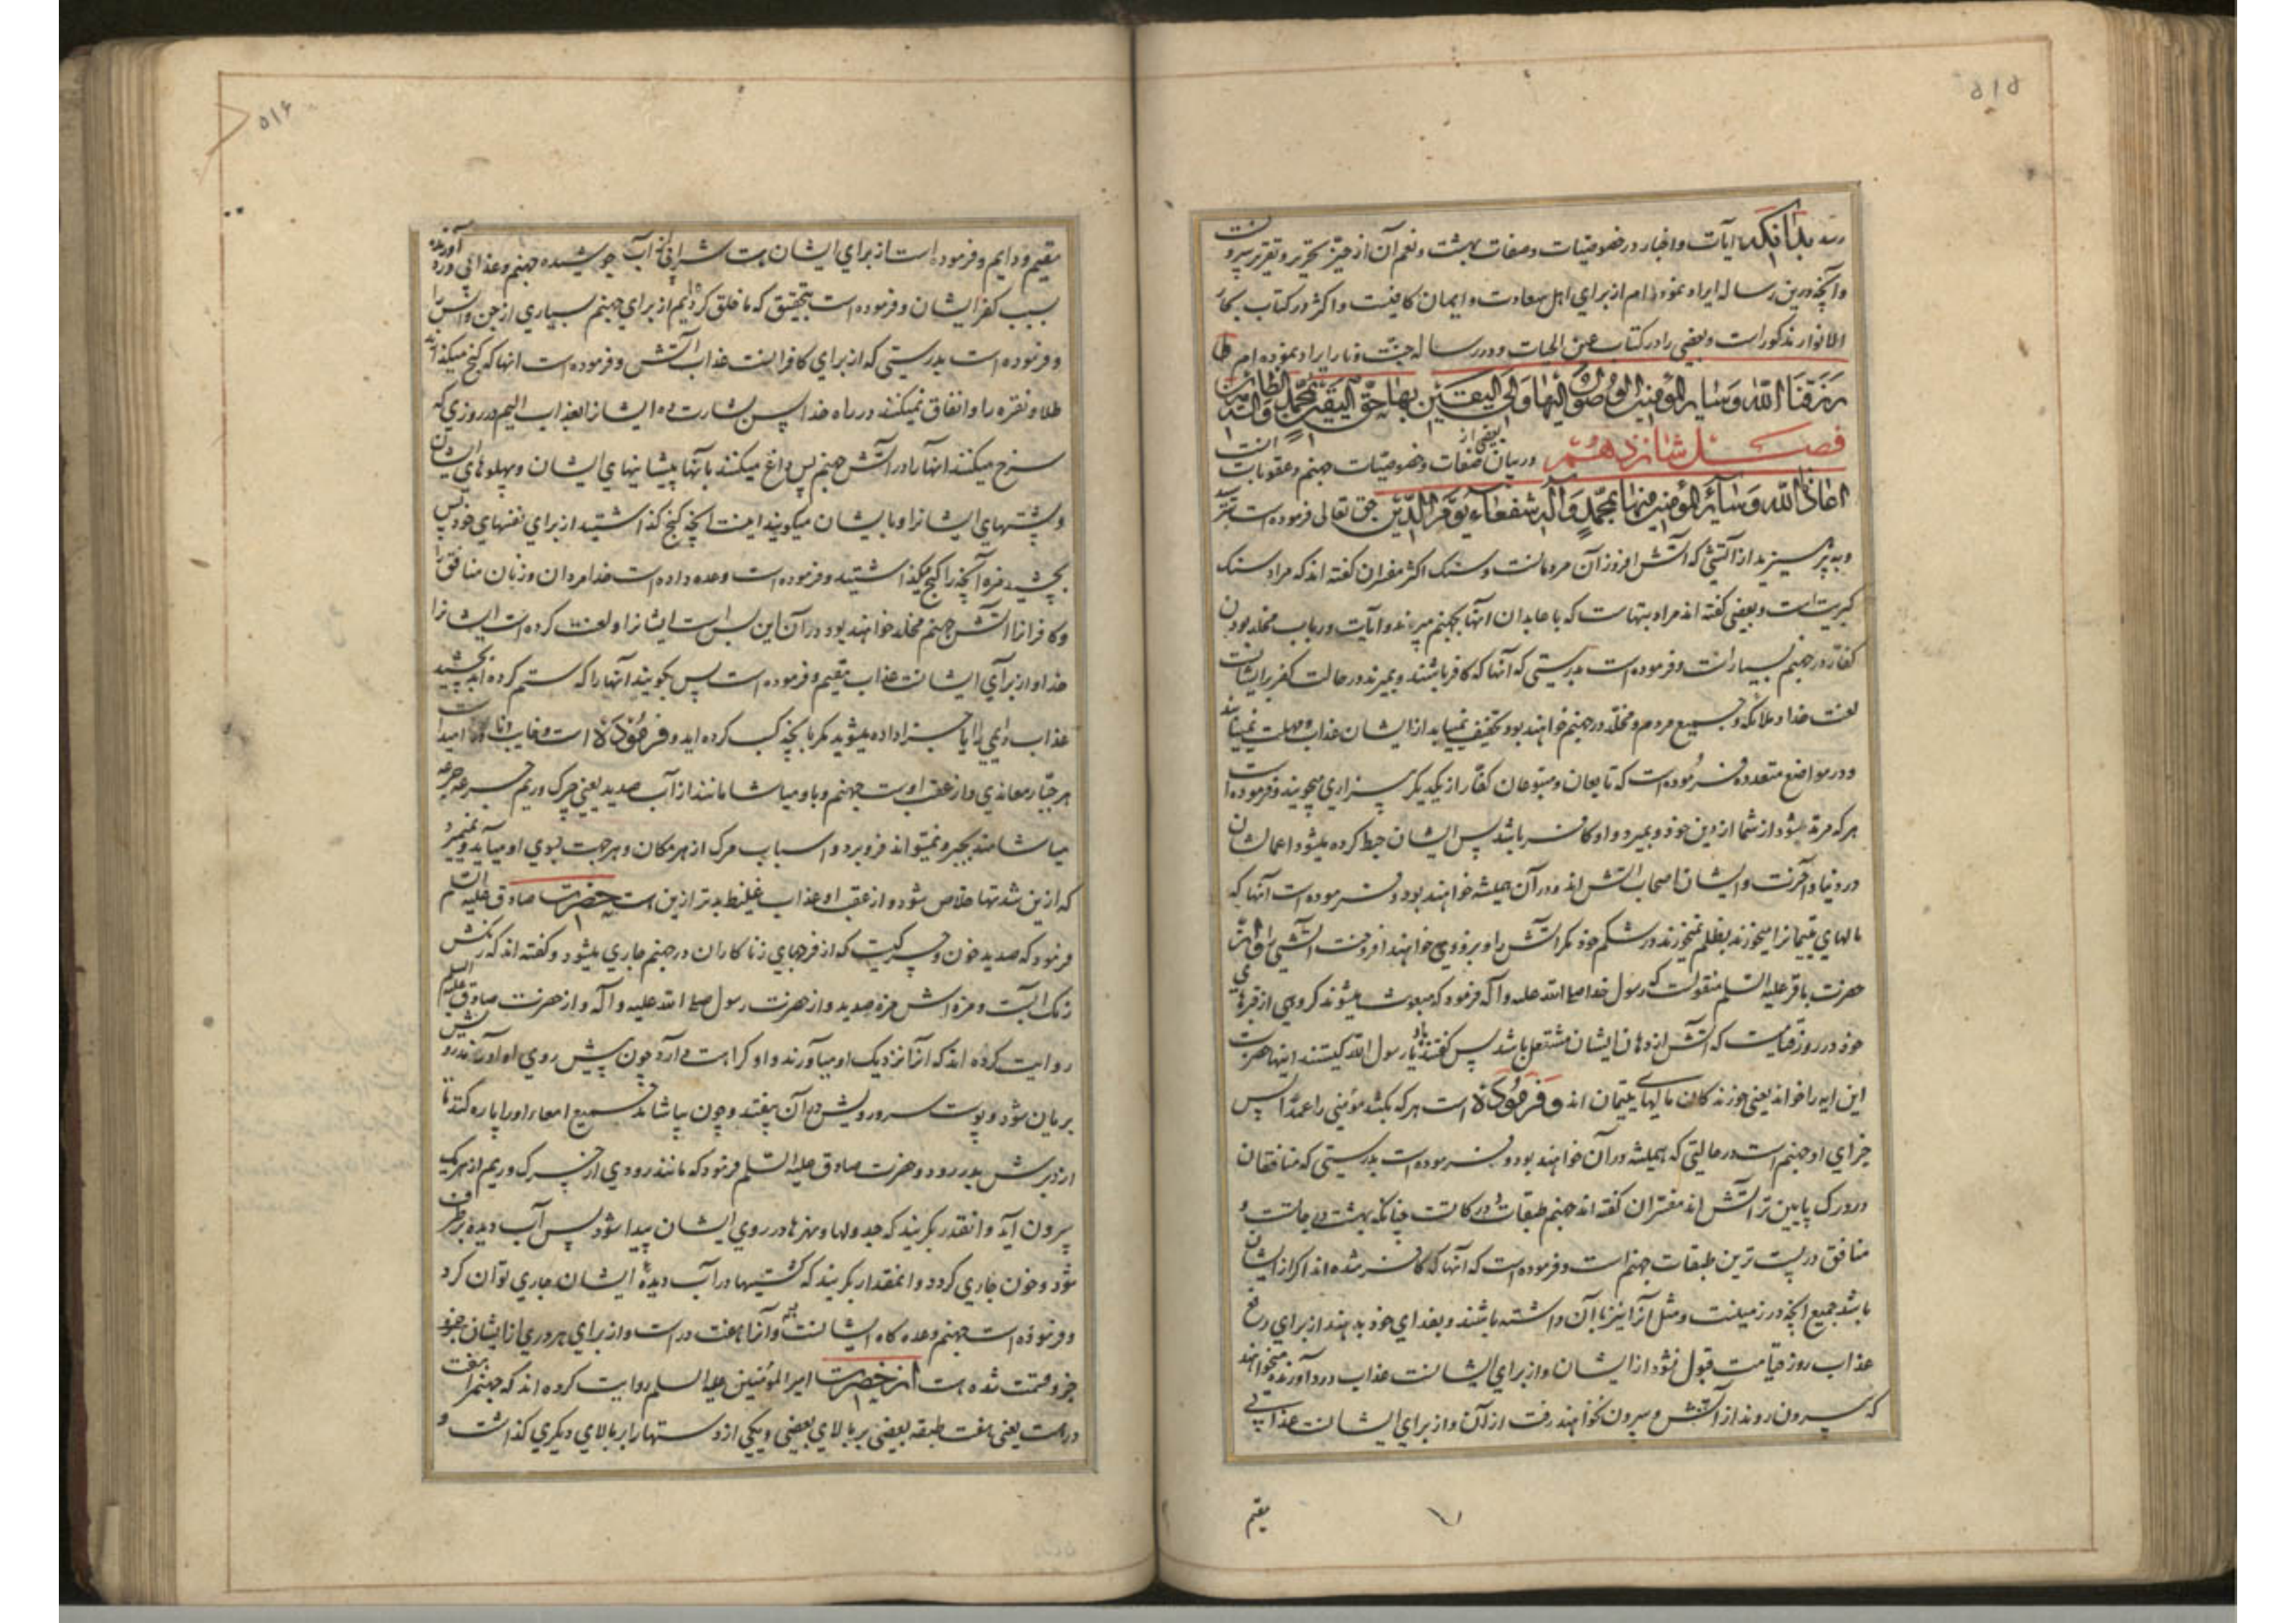 ۵۱۵
رسد بدانکه آیات و اخبار در خصوصیات و صفات بهشت و نعم آن از حیّز تحریر و تقریر بیرونست
و آنچه درین رساله ایراد نموده ام از برای اهل سعادت و ایمان کافیست و اکثر در کتاب بحار
الانوار مذکور است و بعضی را در کتاب عین الحیات و در رساله جنّت و نار ایراد نموده ام
رزقنا الله و سایر المؤمنین الوصول الیها و الی الیقین بها حق الیقین بمحمد و آله الطاهرین
فصل شانزدهم در بیان بعضی از صفات و خصوصیات جهنم و عقوبات آنست
اعاذنا الله و سائر المؤمنین منها بمحمد و آله شفعاء یوم الدین حق تعالی فرموده است بترسید
و بپرهیزید از آتشی که آتش افروز آن مردمانست و سنک اکثر مفسران گفته اند که مراد سنک
کبریت است و بعضی گفته اند مراد بتهاست که با عابدان آنها بجهنم میبرند و آیات در باب مخلد بودن
کفار در جهنم بسیار است و فرموده است بدرستی که آنها که کافر باشند و بمیرند در حالت کفر بر ایشانست
لعنت خدا و ملائکه و جمیع مردم و مخلد در جهنم خواهند بود و تخفیف نمییابد از ایشان عذاب و مهلت نمییابند
و در مواضع متعدده فرموده است که تابعان و متبوعان کفار از یکدیگر بیزاری میجویند و فرموده است
هر که مرتد میشود از شما از دین خود و بمیرد و او کافر باشد پس ایشان حبط کرده میشود اعمالشان
در دنیا و آخرت و ایشان اصحاب آتش اند و در آن همیشه خواهند بود و فرموده است آنها که
مالهای یتیمانرا میخورند بظلم نمیخورند در شکم خود مکر آتش را و بزودی خواهند افروخت آتشی
حضرت باقر علیه السلم منقولست که رسول خدا صلی الله علیه و آله فرمود که مبعوث میشوند کروهی از قبرهای
خود در روز قیامت که آتش از دهان ایشان مشتعل باشد پس گفتند یا رسول الله کیستند اینها حضرت
این ایه را خواند یعنی خورندکان مالهای یتیمان اند و فرموده است هر که بکشد مؤمنی را عمداً پس
جزای او جهنم است در حالتی که همیشه در آن خواهند بود و فرموده است بدرستی که منافقان
در درک پایین تر آتش اند مفسران گفته اند جهنم طبقات و درکاتست چنانکه بهشت درجاتست و
منافق در پست ترین طبقات جهنم است و فرموده است که آنها که کافر شده اند اکر از ایشان
باشد جمیع آنچه در زمینست و مثل آنرا نیز با آن داشته باشند و بفدای خود بدهند از برای دفع
عذاب روز قیامت قبول نشود از ایشان و از برای ایشانست عذاب دردآورنده میخواهند
که بیرون روند از آتش و بیرون نخواهند رفت از آن و از برای ایشانست عذابی
مقیم
۵۱۶
مقیم و دایم و فرموده است از برای ایشان است شرابی از آب جوشیده جهنم و عذابی درد آورنده
بسبب کفر ایشان و فرموده است بتحقیق که ما خلق کرده ایم از برای جهنم بسیاری از جن و انس را
و فرموده است بدرستی که از برای کافرانست عذاب آتش و فرموده است آنها که کنج میکذارند
طلا و نقره را و انفاق نمیکنند در راه خدا پس بشارت ده ایشانرا بعذاب الیم در روزی که
سرخ میکنند آنها را در آتش جهنم پس داغ میکنند بآنها پیشانیهای ایشان و پهلوهای ایشان
و پشتهای ایشانرا و با ایشان میکویند اینست آنچه کنج گذاشتید از برای نفسهای خود پس
بچشید مزه آنچه را کنج میکذاشتید و فرموده است وعده داده است خدا مردان و زنان منافق را
و کافرانرا آتش جهنم مخلد خواهند بود در آن این بس است ایشانرا و لعنت کرده است ایشانرا
خدا و از برای ایشانست عذاب مقیم و فرموده است پس بکویند آنها را که ستم کرده اند بچشید
عذاب دایمی را آیا جزا داده میشوید مکر بآنچه کسب کرده اید و فرموده است و خایب و ناامید است
هر جبّار معاندی و از عقب اوست جهنم و باو میاشامانند از آب صدید یعنی چرک و ریم جرعه جرعه
میاشامند بجبر و نمیتواند فرو برد و اسباب مرک از هر مکان و هر جهت بسوی او میآید و نمیمیرد
که ازین شدتها خلاص شود و از عقب او عذاب غلیظ بدتر ازین است حضرت صادق علیه السلم
فرمود که صدید خون و چرکیست که از فرجهای زناکاران در جهنم جاری میشود و گفته اند که رنکش
رنک آبست و مزه اش مزه صدید و از حضرت رسول صلی الله علیه و آله و از حضرت صادق علیه السلم
روایت کرده اند که آنرا نزدیک او میآورند و او کراهت دارد چون پیش روی او آورند رویش
بریان شود و پوست سر و رویش در آن بیفتد و چون بیاشامد جمیع امعاء او را پاره کند تا
از دبرش بدر رود و حضرت صادق علیه السلم فرمود که مانند رودی از چرک و ریم از هر یک
بیرون آید و انقدر بکریند که جدولها و نهرها در روی ایشان پیدا شود پس آب دیده برطرف
شود و خون جاری کردد و انمقدار بکریند که کشتیها در آب دیدهٔ ایشان جاری توان کرد
و فرموده است جهنم وعده کاه ایشانست و آنرا هفت در است و از برای هر دری از ایشان جزو
جزو قسمت شده است از حضرت امیر المؤمنین علیه السلم روایت کرده اند که جهنم را هفت
در است یعنی هفت طبقه بعضی بر بالای بعضی و یکی از دستها را بر بالای دیکری گذاشت و